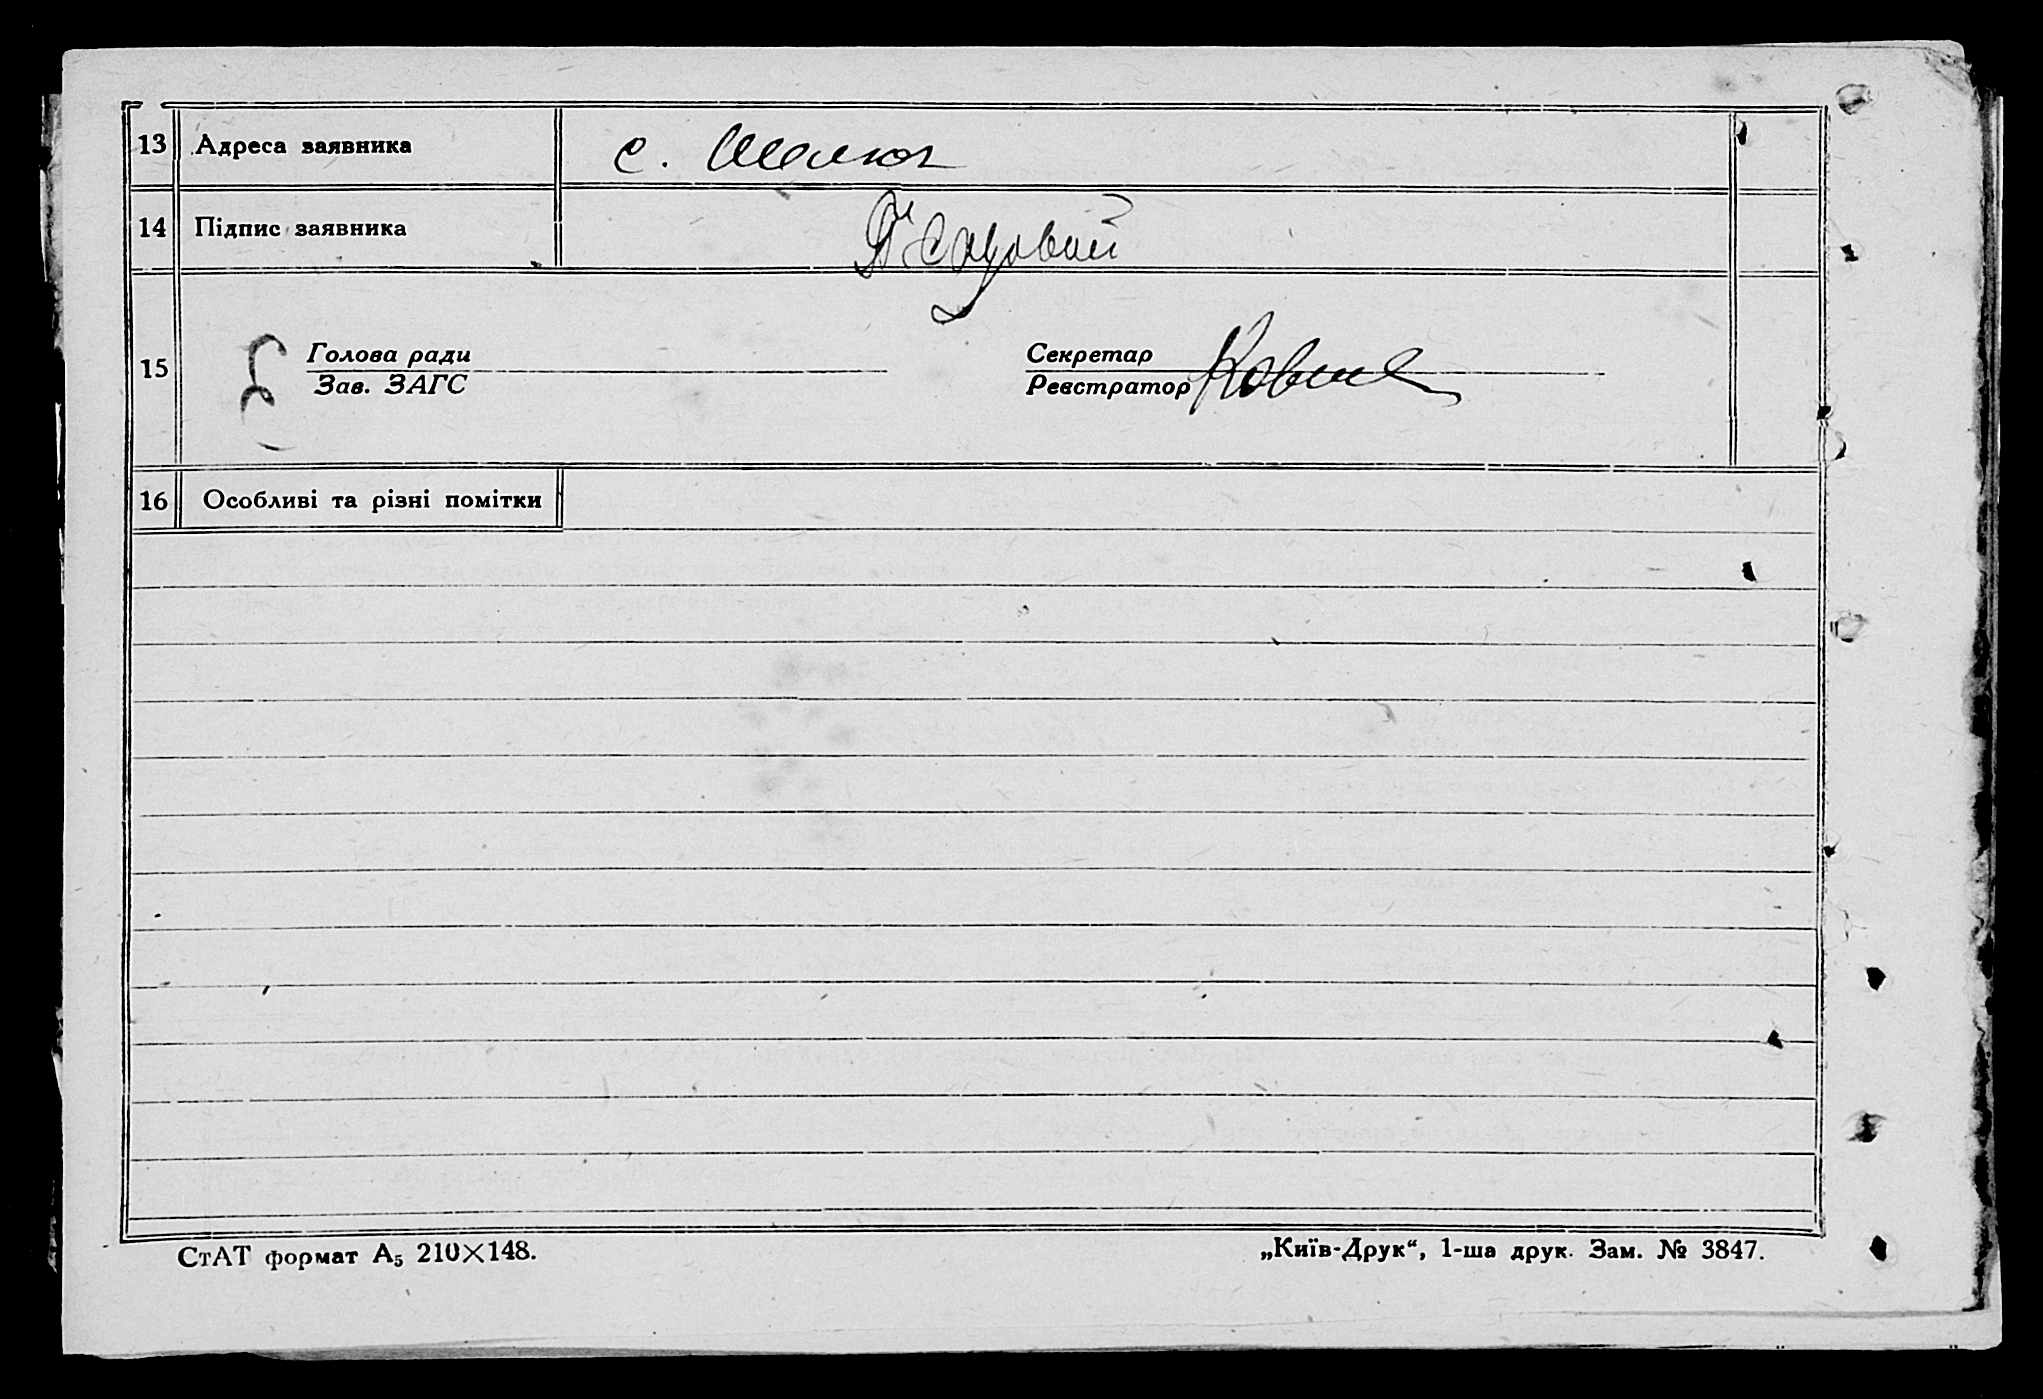 13 Адреса заявника с.
14 Підпис заявника
15 Голова ради Секретар
Зав. ЗАГС Реєстратор
16 Особливі та різні помітки
СтАТ формат А₅ 210×148. „Київ-Друк“, 1-ша друк. Зам. № 3847.